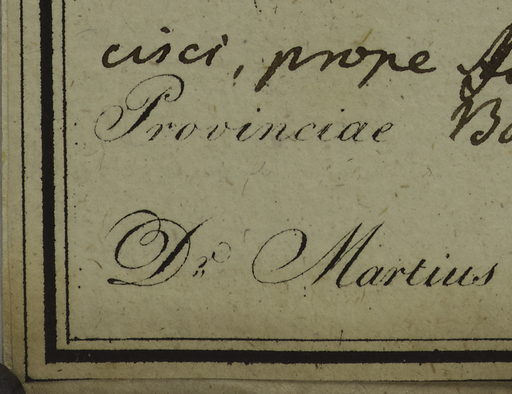 cisci, prope
Provinciae
Dr. Martius